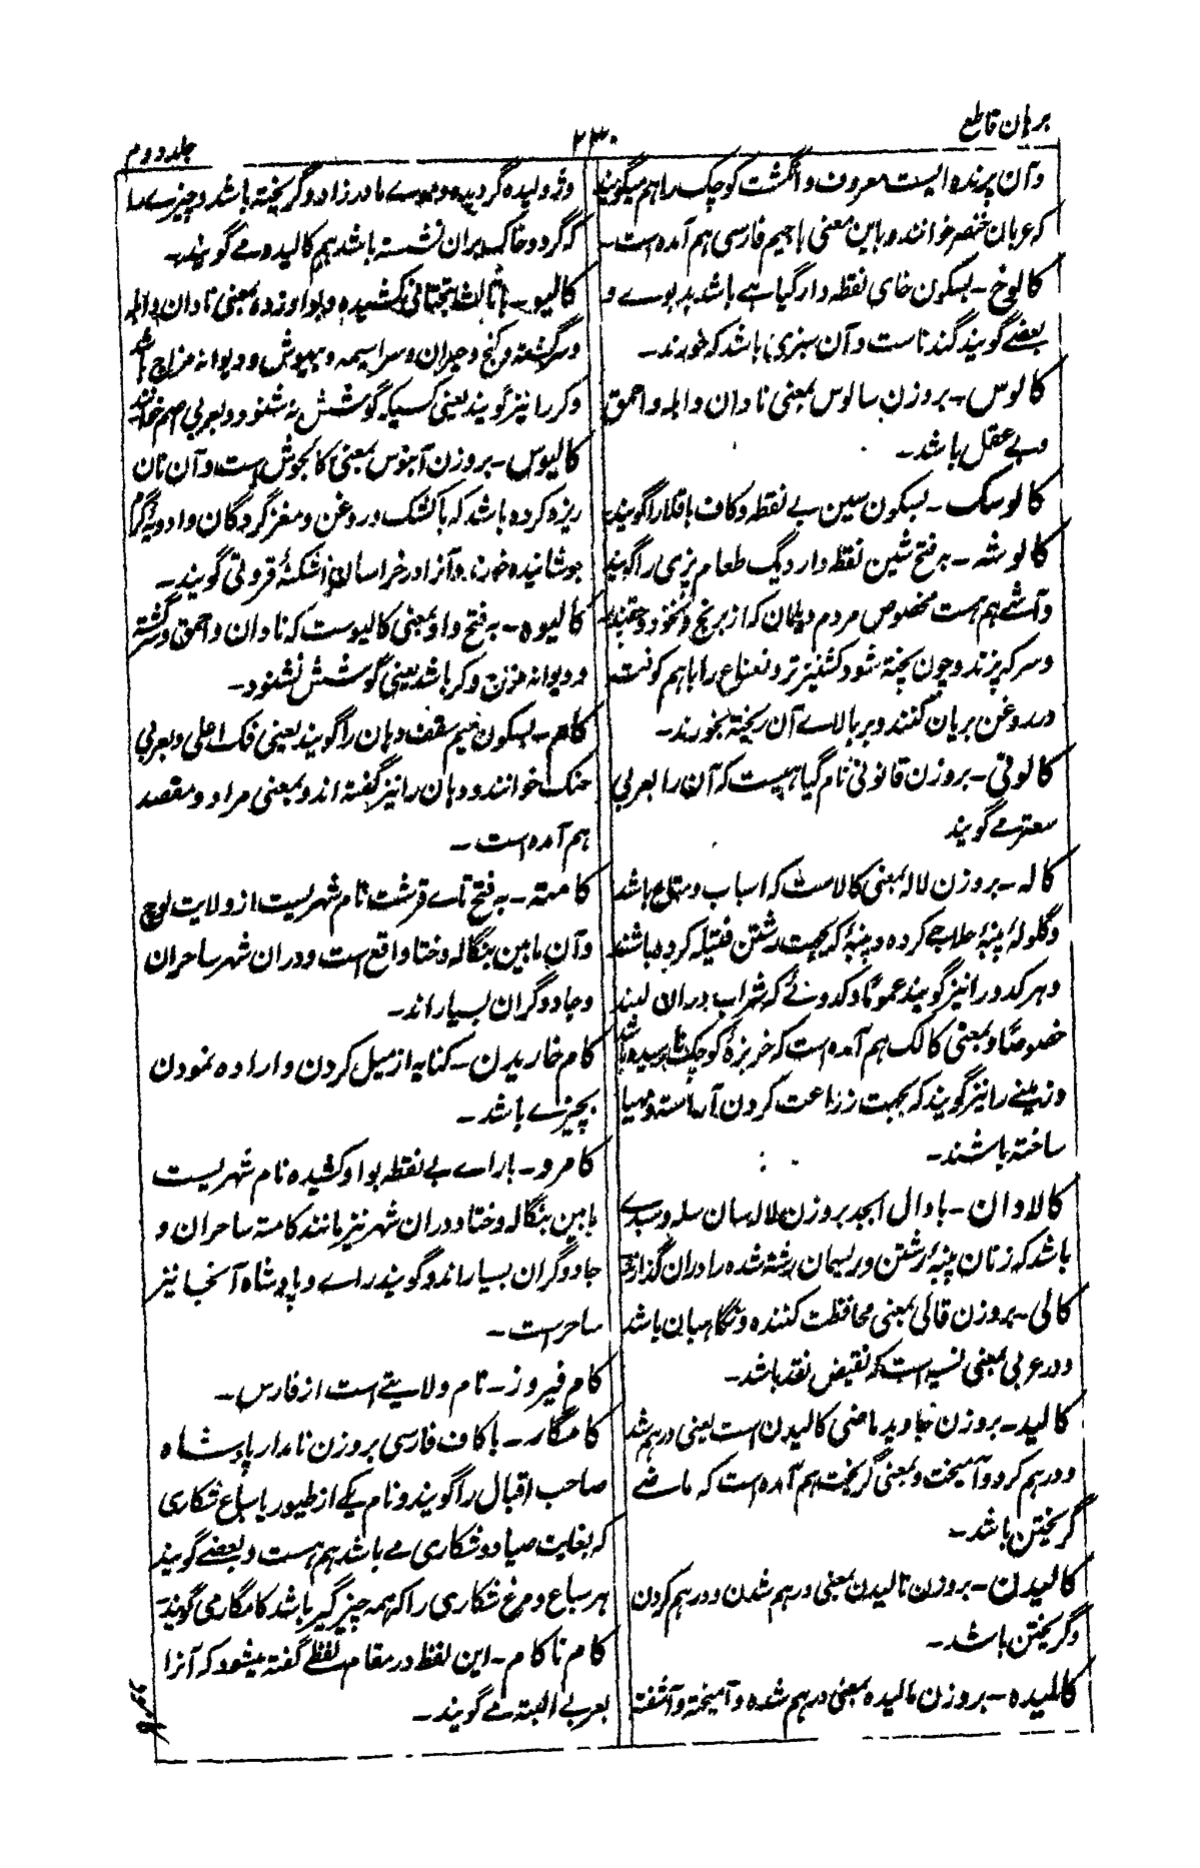 برہان قاطع
۲۳۰
جلد دوم
وآن پرنده ایست معروف و انگشت کوچک را ہم میگویند
کہ عربان خنصر خوانند و باین معنی با جیم فارسی ہم آمده است۔
کالوخ۔ بسکون خای نقطہ دار گیاہے باشد بدبوے و
بعضے گویند گندناست و آن سبزی باشد کہ خورند۔
کالوس۔ بروزن سالوس بمعنی نادان و ابلہ و احمق
و بے عقل باشد۔
کالوسک۔ بسکون سین بے نقطہ و کاف باقلا را گویند
کالوشہ۔ بہ فتح شین نقطہ دار دیگ طعام پزی را گویند
و آشے ہم ہست مخصوص مردم کہ از برنج و نخود و چغندر
و سرکہ پزند و چون پختہ شود کشنیز تر و نعناع را باہم کوفتہ
در روغن بریان کنند و بر بالاے آن ریختہ بخورند۔
کالونی۔ بروزن قانونی نام گیاہیست کہ آن را بعربی
سعتر مے گویند
کالہ۔ بروزن لالہ بمعنی کالاست کہ اسباب و متاع باشد
و گلولۂ پنبۂ حلاجے کرده و پنبۂ کہ بجہت رشتن فتیلہ کرده باشند
و ہر کدو را نیز گویند عموماً و کدوئے کہ شراب دران کنند
خصوصاً و بمعنی کالک ہم آمده است کہ خربزۂ کوچک نارسیده باشد
و زمینے را نیز گویند کہ بجہت زراعت کردن آراستہ و مہیا
ساختہ باشند۔
کالادان۔ با دال ابجد بروزن لالہ سان سلہ و سبدے
باشد کہ زنان پنبۂ رشتن و ریسمان رشتہ شده را دران گذارند
کالی۔ بروزن قالی بمعنی محافظت کننده و نگاہبان باشد
و در عربی بمعنی نسیہ است کہ نقیض نقد باشد۔
کالید۔ بروزن جاوید ماضی کالیدن است یعنی درہم شد
و درہم کرد و آمیخت و بمعنی گریخت ہم آمده است کہ ماضے
گریختن باشد۔
کالیدن۔ بروزن نالیدن بمعنی درہم شدن و درہم کردن
و گریختن باشد۔
کالیده۔ بروزن مالیده بمعنی درہم شده و آمیختہ و آشفتہ
وژولیده گردیده و موے مادرزاد و گریختہ باشد و چیزے را
کہ گرد و خاک بران نشستہ باشد ہم کالیده مے گویند۔
کالیو۔ با ثالث بتحتانی کشیده و بواو زده بمعنی نادان و ابلہ
و سرگشتہ و گنج و حیران و سراسیمہ و بیہوش و دیوانہ مزاج باشد
و کر را نیز گویند یعنی کسیکہ گوشش نہ شنود و بعربی اصم خوانند
کالیوس۔ بروزن آبنوس بمعنی کالجوش است و آن نان
ریزه کرده باشد کہ با کشک و روغن و مغز گردگان و ادویۂ گرم
جوشانیده خورند و آنرا در خراسان اشکنۂ قروتی گویند۔
کالیوه۔ بہ فتح واو بمعنی کالیوست کہ نادان و احمق و سرگشتہ
و دیوانہ مزاج و کر باشد یعنی گوشش نشنود۔
کام۔ بسکون میم سقف دہان را گویند یعنی فک اعلی و بعربی
حنک خوانند و دہان را نیز گفتہ اند و بمعنی مراد و مقصد
ہم آمده است۔
کامتہ۔ بہ فتح تاے قرشت نام شہریست از ولایت لوچ
و آن مابین بنگالہ و ختا واقع است و دران شہر ساحران
و جادوگران بسیار اند۔
کام خاریدن۔ کنایہ از میل کردن و اراده نمودن
بچیزے باشد۔
کامرو۔ با راے بے نقطہ بواو کشیده نام شہریست
مابین بنگالہ و ختا و دران شہر نیز مانند کامتہ ساحران و
جادوگران بسیار اند و گویند راے و پادشاه آنجا نیز
ساحرست۔
کام فیروز۔ نام ولایتے است از فارس۔
کامگار۔ با کاف فارسی بروزن نامدار پادشاه
صاحب اقبال را گویند و نام یکے از طیور یا سباع شکاری
کہ بغایت صیاد و شکاری مے باشد ہم ہست و بعضے گویند
ہر سباع و مرغ شکاری را کہ ہمہ چیز گیر باشد کامگار می گویند
کام ناکام۔ این لفظ در مقام لفظے گفتہ میشود کہ آنرا
بعربے البتہ مے گویند۔